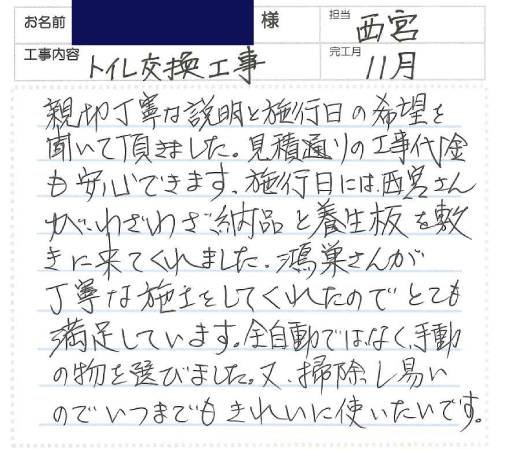 お名前 様 担当 西宮
工事内容 トイレ交換工事 完工月 11月
親切丁寧な説明と施行日の希望を
聞いて頂きました。見積通りの工事代金
も安心できます、施行日には、西宮さん
が、わざわざ納品と養生板を敷
きに来てくれました、鴻巣さんが
丁寧な施工をしてくれたのでとても
満足しています。全自動ではなく、手動
の物を選びました。又、掃除し易い
のでいつまでもきれいに使いたいです。